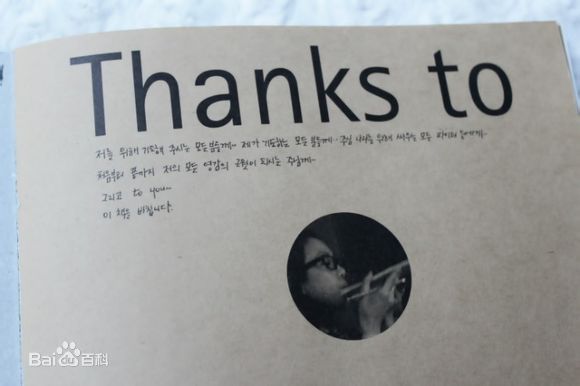 Thanks to
저를 위해 기도해 주시는 모든 분들께.. 제가 기도하는 모든 분들께.. 주님 나라를 위해 싸우는 모든 파이터들에게..
처음부터 끝까지 저의 모든 영감의 근원이 되시는 주님께..
그리고 to you...
이 책을 바칩니다.
Bai du 百科